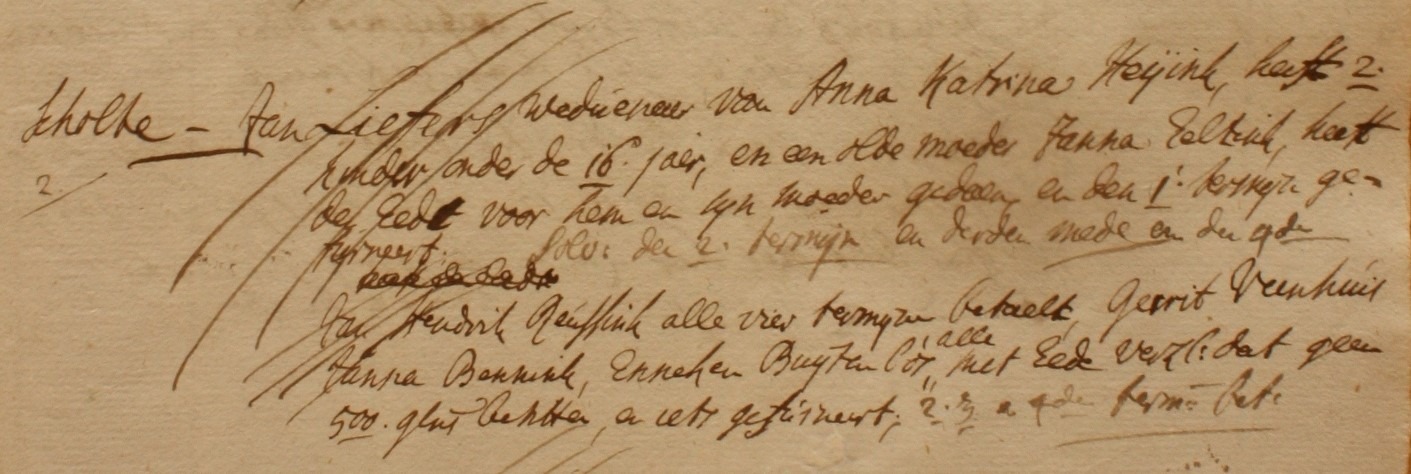 Scholte - Jan Liefers weduenaer van Anna Katrina Heijink, heeft 2.
2 kinder onder de 16. jaer, en een olde moeder Janna Eeltink, heeft
den Eedt voor hem en syn moeder gedaen, en den 1. termyn ge-
furneert. Solv: den 2. termyn en derden mede en den 4de
Jan Hendrik Reussink alle vier termynen betaelt, Gerrit Veenhuis
Janna Bennink, Enneken Buyten alle met Eede verkl: dat geen
500. glns besitten, en iets gefurneert; 2. 3 en 4de term: bet: